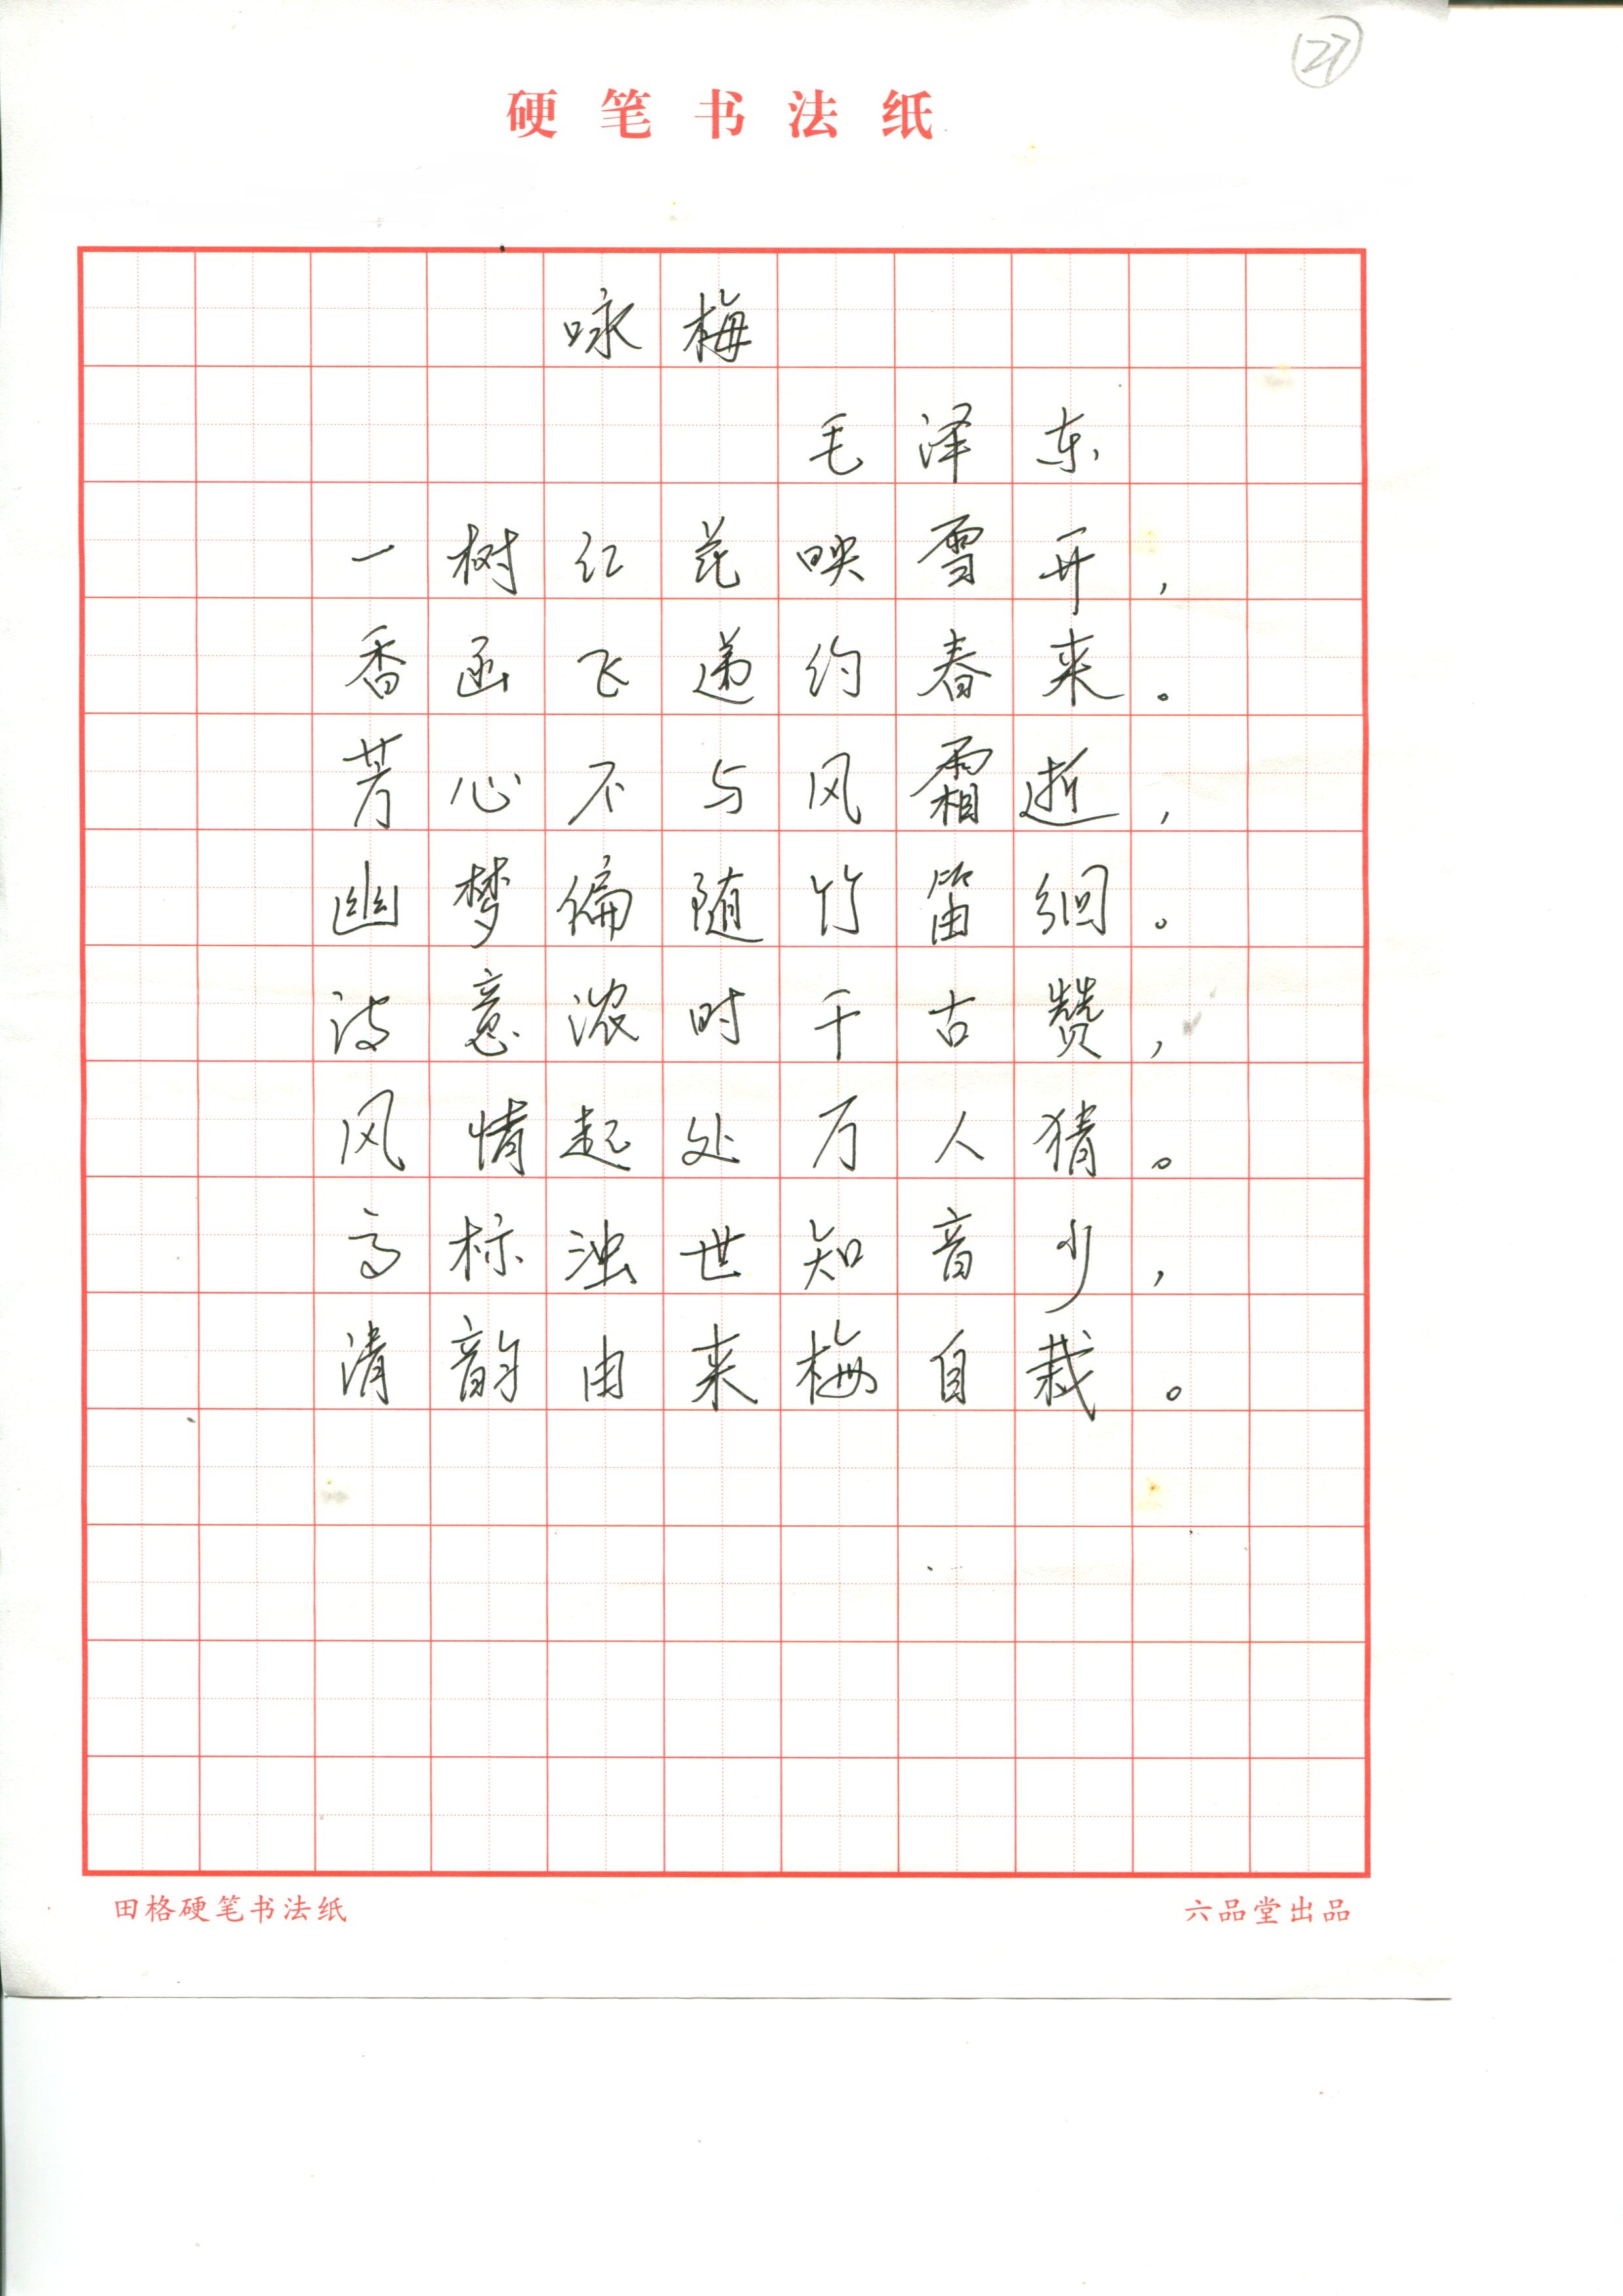 27
硬笔书法纸
咏梅
毛泽东
一树红花映雪开，
香函飞递约春来。
芳心不与风霜逝，
幽梦偏随竹笛洄。
诗意浓时千古赞，
风情起处万人猜。
高标浊世知音少，
清韵由来梅自栽。
田格硬笔书法纸 六品堂出品